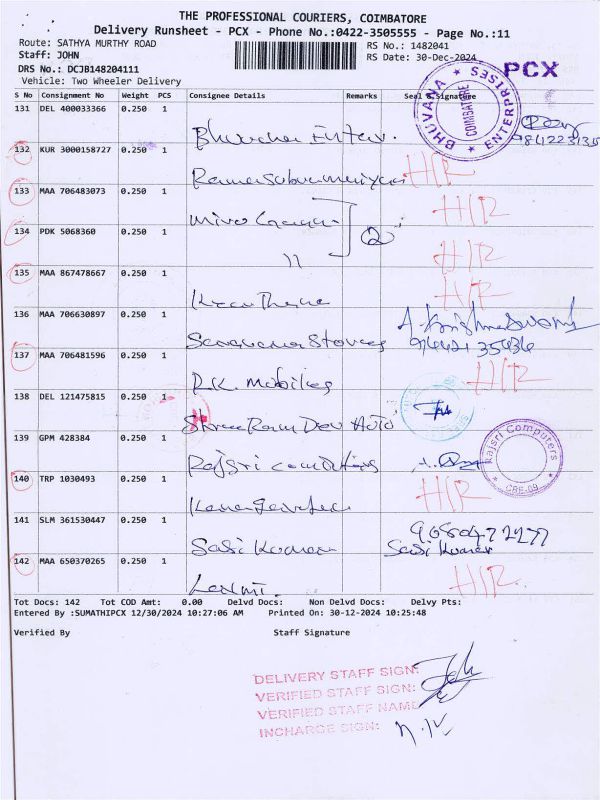 THE PROFESSIONAL COURIERS, COIMBATORE
Delivery Runsheet - PCX - Phone No.:0422-3505555 - Page No.:11
Route: SATHYA MURTHY ROAD
RS No.: 1482041
Staff: JOHN
RS Date: 30-Dec-2024
DRS No.: DCJB148204111
Vehicle: Two Wheeler Delivery
PCX
S No Consignment No Weight PCS Consignee Details Remarks Seal & Signature
131 DEL 400033366 0.250 1
BHUVANA ENTERPRISES COIMBATORE
132 KUR 3000158727 0.250 1
H/R
133 MAA 706483073 0.250 1
H/R
134 PDK 5068360 0.250 1
11
H/R
135 MAA 867478667 0.250 1
H/R
136 MAA 706630897 0.250 1
A. Krishnaswamy
Saravana Stores
137 MAA 706481596 0.250 1
R.K. Mobiles
H/R
138 DEL 121475815 0.250 1
Shree Ram Dev Auto
139 GPM 428384 0.250 1
Rajsri Computers
Rajsri Computers
CBE-09
140 TRP 1030493 0.250 1
H/R
141 SLM 361530447 0.250 1
Sasi Kumar
Sasi Kumar
142 MAA 650370265 0.250 1
Laxmi.
H/R.
Tot Docs: 142 Tot COD Amt: 0.00 Delvd Docs: Non Delvd Docs: Delvy Pts:
Entered By :SUMATHIPCX 12/30/2024 10:27:06 AM Printed On: 30-12-2024 10:25:48
Verified By Staff Signature
DELIVERY STAFF SIGN:
VERIFIED STAFF SIGN:
VERIFIED STAFF NAME
INCHARGE SIGN: